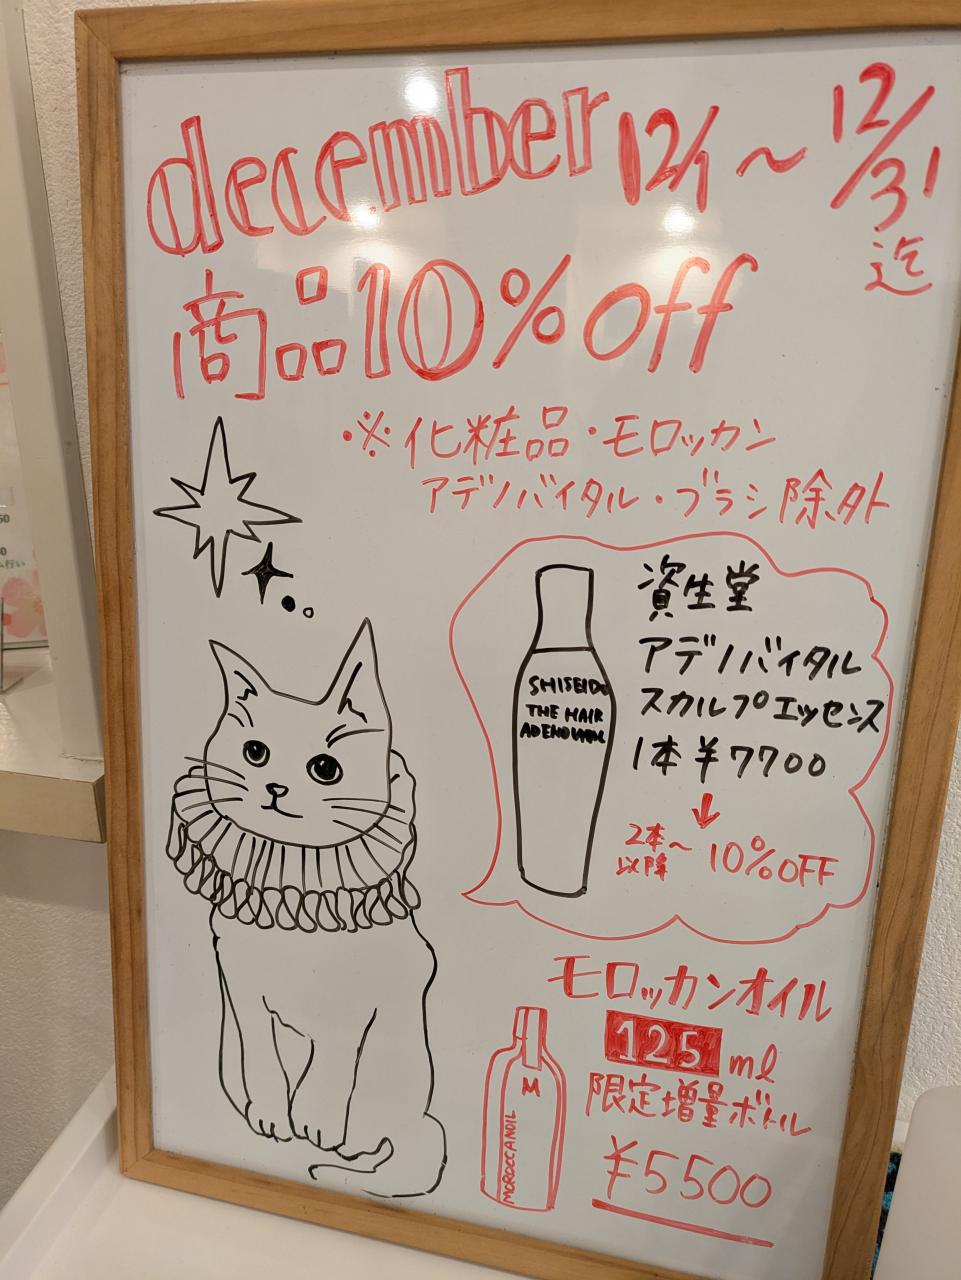 december 12/1 ~ 12/31 迄
商品10%off
・※化粧品・モロッカン
アデノバイタル・ブラシ除外
SHISEIDO
THE HAIR
資生堂
アデノバイタル
スカルプエッセンス
1本 ¥7700
↓
2本~以降 10%OFF
モロッカンオイル
125ml
限定増量ボトル
¥5500
M
MOROCCANOIL